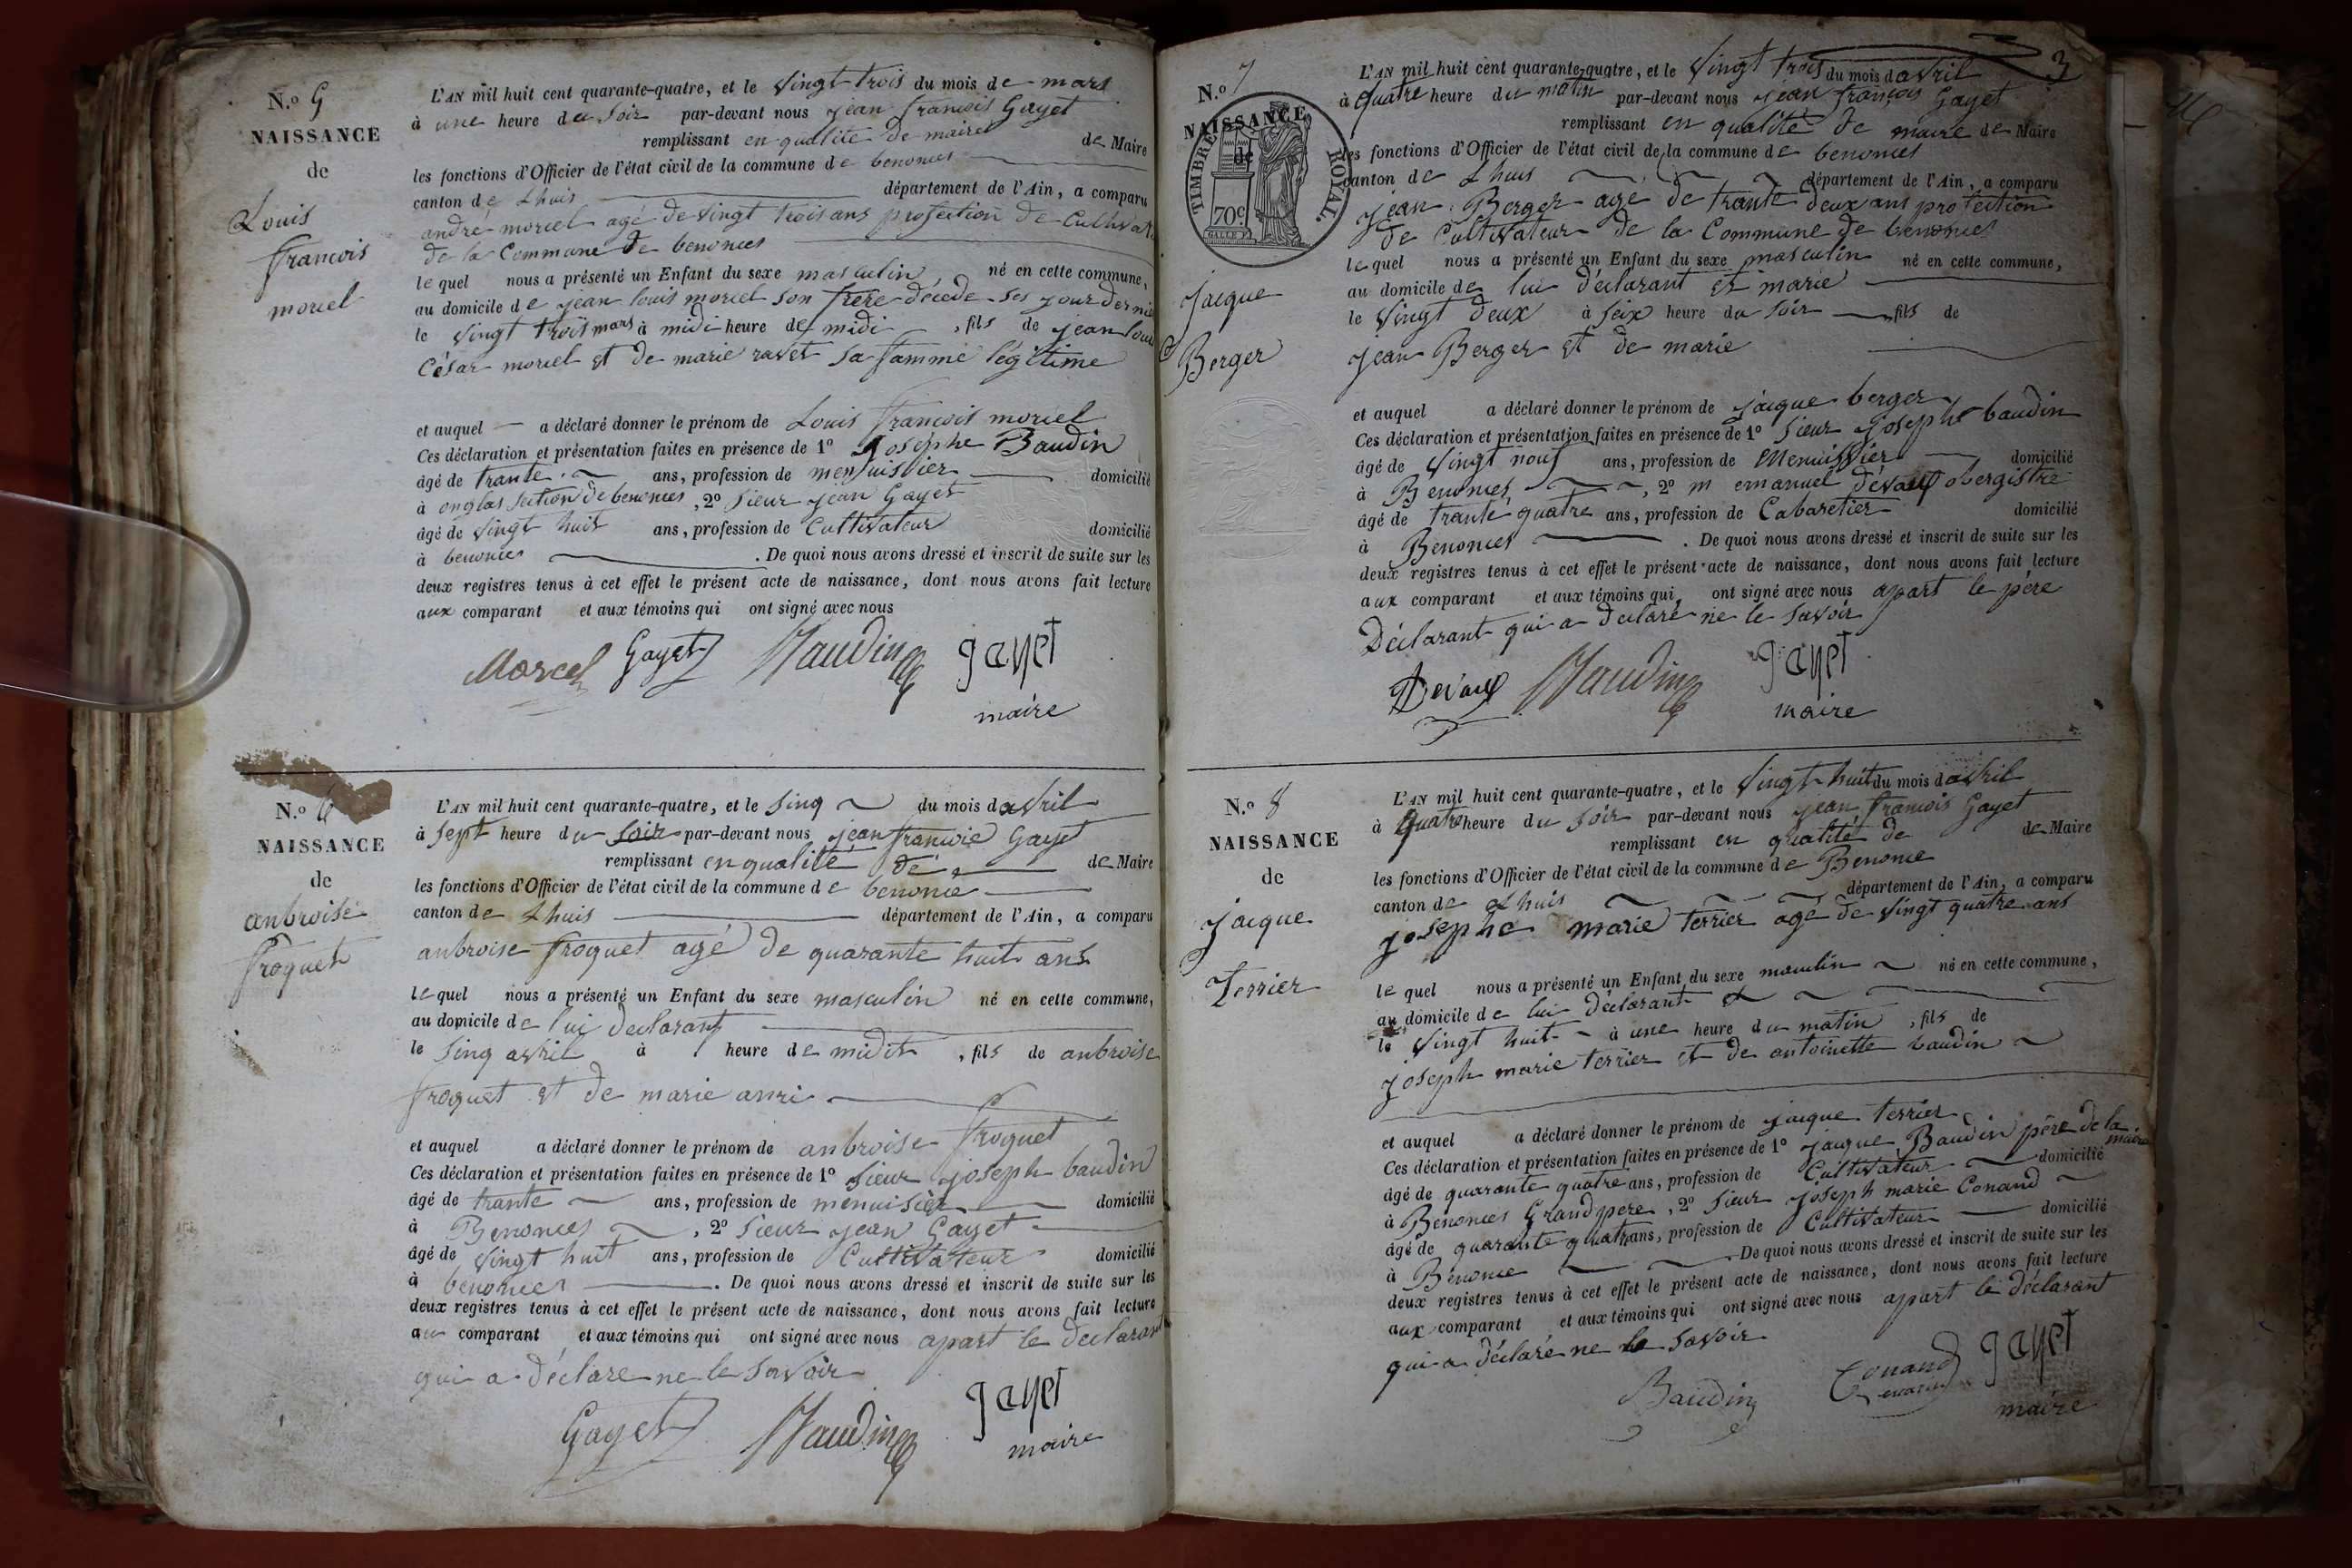 N.º 5
NAISSANCE
de
Louis
francois
moriel
L'AN mil huit cent quarante-quatre, et le vingt trois du mois de mars
à une heure du soir par-devant nous jean francois Gayet
remplissant en qualité de maire de Maire
les fonctions d'Officier de l'état civil de la commune de benonces
canton de Lhuis département de l'Ain, a comparu
andré moriel agé de vingt trois ans profection de Cultivat
de la Commune de benonces
le quel nous a présenté un Enfant du sexe masculin, né en cette commune,
au domicile de jean louis moriel son frère décede ses jour dernie
le vingt trois mars à midi heure de midi, fils de jean loui
César moriel et de marie ravet sa famme légitime
et auquel a déclaré donner le prénom de Louis francois moriel
Ces déclaration et présentation faites en présence de 1º Josephe Baudin
âgé de trante ans, profession de menuissier domicilié
à onglas section de benonces, 2º sieur jean Gayet
âgé de vingt huit ans, profession de Cultivateur domicilié
à benonces. De quoi nous avons dressé et inscrit de suite sur les
deux registres tenus à cet effet le présent acte de naissance, dont nous avons fait lecture
aux comparant et aux témoins qui ont signé avec nous
Morcel Gayet Baudin gayet
maire
N.º 6
NAISSANCE
de
anbroise
froquet
L'AN mil huit cent quarante-quatre, et le sinq du mois d avril
à sept heure du soir par-devant nous jean francoie Gayet
remplissant en qualité de de Maire
les fonctions d'Officier de l'état civil de la commune de benonce
canton de Lhuis département de l'Ain, a comparu
anbroise froquet agé de quarante huit ans
le quel nous a présenté un Enfant du sexe masculin né en cette commune,
au domicile de lui declarant
le sinq avril à heure de midit, fils de anbroise
froquet et de marie anri
et auquel a déclaré donner le prénom de anbroise froquet
Ces déclaration et présentation faites en présence de 1º sieur joseph baudin
âgé de trante ans, profession de menuisier domicilié
à Benonces, 2º sieur jean Gayet
âgé de vingt huit ans, profession de Cultivateur domicilié
à benonces. De quoi nous avons dressé et inscrit de suite sur les
deux registres tenus à cet effet le présent acte de naissance, dont nous avons fait lecture
au comparant et aux témoins qui ont signé avec nous apart le declarant
qui a déclare ne le savoir
Gayet Baudin gayet
maire
3
N.º 7
NAISSANCE
de
TIMBRE ROYAL
70c
Jacque
Berger
L'AN mil huit cent quarante-quatre, et le vingt trois du mois d avril
à quatre heure du matin par-devant nous jean françois Gayet
remplissant en qualité de maire de Maire
les fonctions d'Officier de l'état civil de la commune de benonces
canton de Lhuis département de l'Ain, a comparu
jean Berger agé de trante deux ans profection
de Cultivateur de la Commune de benonces
le quel nous a présenté un Enfant du sexe masculin né en cette commune,
au domicile de lui déclarant et marie
le vingt deux à seix heure du soir, fils de
jean Berger et de marie
et auquel a déclaré donner le prénom de jacque berger
Ces déclaration et présentation faites en présence de 1º sieur josephe baudin
âgé de vingt nouf ans, profession de Menuissier domicilié
à Benonces, 2º m emanuel dévaux obergistre
âgé de trante quatre ans, profession de Cabaretier domicilié
à Benonces. De quoi nous avons dressé et inscrit de suite sur les
deux registres tenus à cet effet le présent acte de naissance, dont nous avons fait lecture
aux comparant et aux témoins qui ont signé avec nous apart le père
Déclarant qui a declaré ne le savoir
Devaux Baudin gayet
maire
N.º 8
NAISSANCE
de
jacque
Terrier
L'AN mil huit cent quarante-quatre, et le vingt-huit du mois d avril
à quatre heure du soir par-devant nous jean francois Gayet
remplissant en qualité de de Maire
les fonctions d'Officier de l'état civil de la commune de Benonce
canton de Lhuis département de l'Ain, a comparu
josephe marie terrier agé de vingt quatre ans
le quel nous a présenté un Enfant du sexe masculin né en cette commune,
au domicile de lui déclarant
le vingt huit à une heure du matin, fils de
joseph marie terrier et de antoinette baudin
et auquel a déclaré donner le prénom de jacque terrier
Ces déclaration et présentation faites en présence de 1º jacque Baudin père de la maire
âgé de quarante quatre ans, profession de Cultivateur domicilié
à Benonces Grand pere, 2º sieur joseph marie Conand
âgé de quarante quatre ans, profession de Cultivateur domicilié
à Benonce. De quoi nous avons dressé et inscrit de suite sur les
deux registres tenus à cet effet le présent acte de naissance, dont nous avons fait lecture
aux comparant et aux témoins qui ont signé avec nous apart le déclarant
qui a déclaré ne le savoir
Baudin Conand gayet
maire